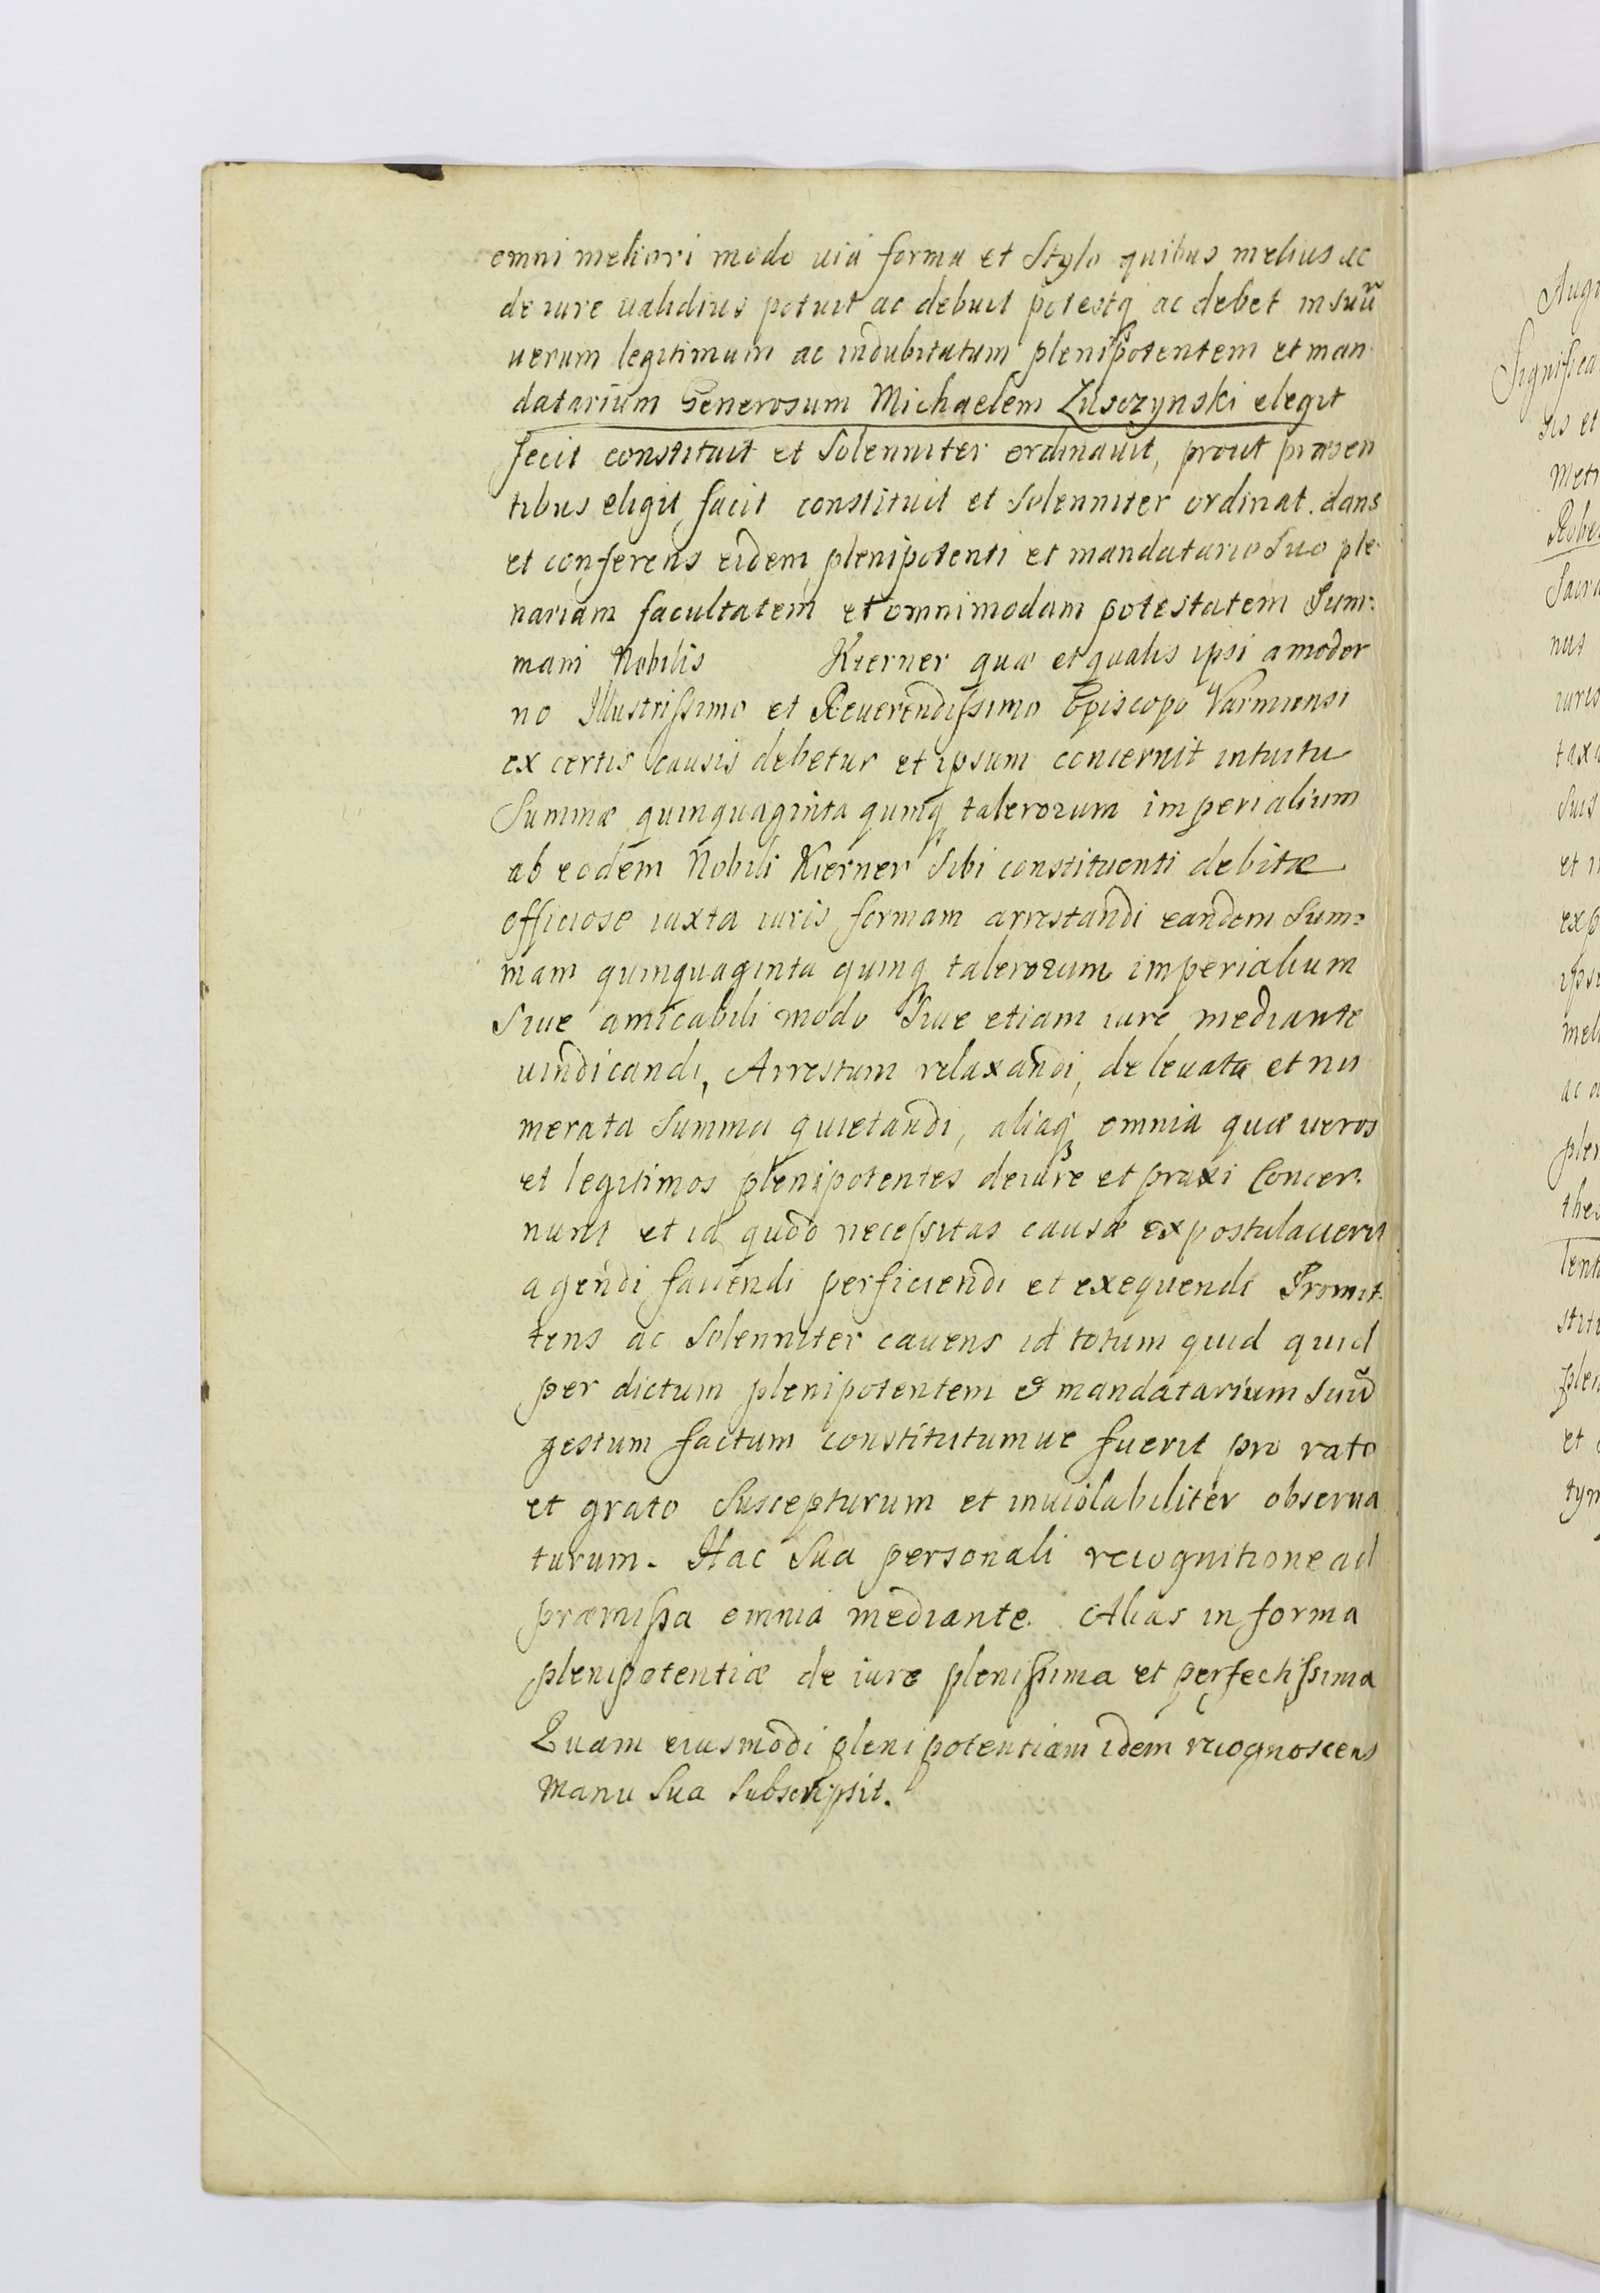 omni meliori modo uiâ forma et Stylo quibus melius ac
de iure ualidius potuit ac debuit potestq ac debet in suũ
uerum legitimum ac indubitatum plenipotentem et man
datarium Generosum Michaelem Zusczynski elegit
fecit constituit et Solenniter ordinauit, prout præsen
tibus eligit facit constituit et Solenniter ordinat. dans
et conferens eidem plenipotenti et mandatario Suo ple-
nariam facultatem et omnimodam potestatem Sum:
mam Nobilis Kierner quæ et qualis ipsi a moder
no Illustrissimo et Reuerendissimo Episcopo Varmiensi
ex certis causis debetur et ipsum concernit intuitu
Summæ quinquaginta quinq talerorum imperialium
ab eodem Nobili Kierner Sibi constituenti debitæ
officiose iuxta iuris formam arrestandi eandem Sum:
mam quinquaginta quinq talerorum imperialium
Siue amicabili modo Siue etiam iure mediante
uindicandi, Arrestum relaxandi, de leuata et nu
merata Summa quietandi, aliaq omnia quæ ueros
et legitimos plenipotentes de iure et praxi Concer:
nunt et id quod necessitas causæ expostulauerit
agendi faciendi perficiendi et exequendi Promit-
tens ac Solenniter cauens id totum quid quid
per dictum plenipotentem & mandatarium Suũ
gestum factum constitutumue fuerit pro rato
et grato Suscepturum et inuiolabiliter obserua
turum. Hac Sua personali recognitione ad
præmissa omnia mediante. Alias in forma
plenipotentiæ de iure plenissima et perfectissima
Quam eiusmodi plenipotentiam idem recognoscens
Manu Sua Subscripsit.